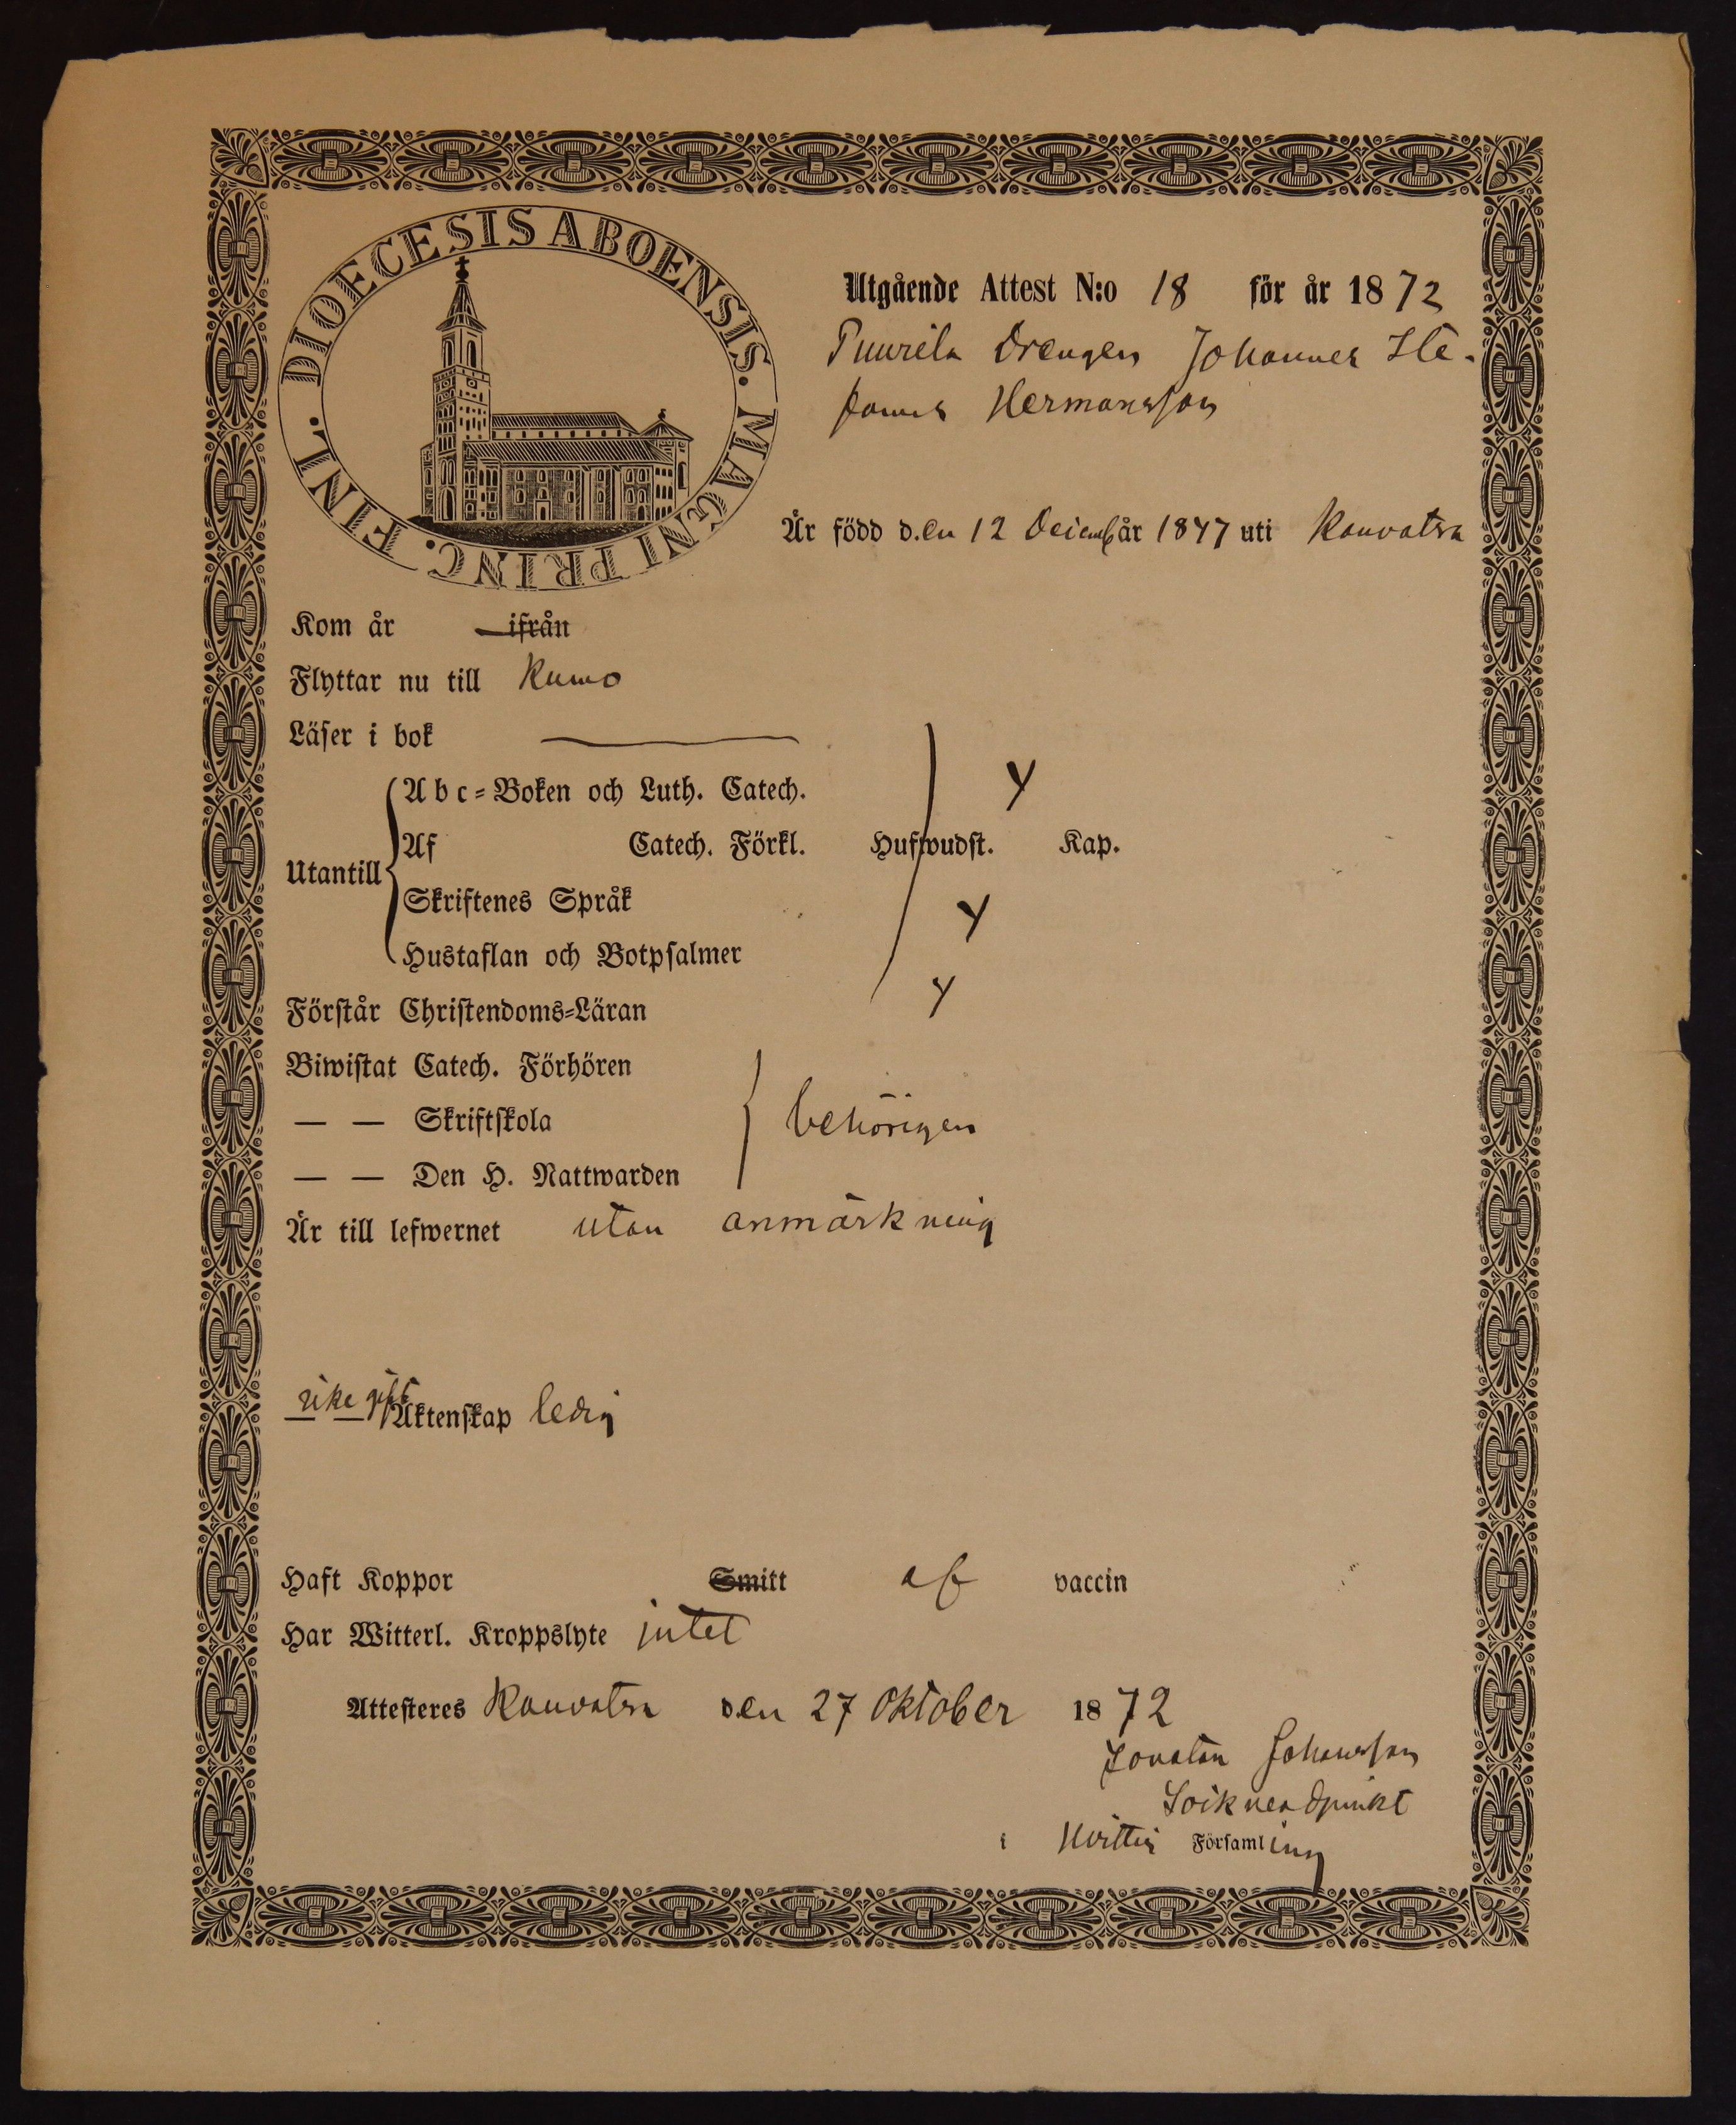 DIOECESIS ABOENSIS. MAGNI PRINC. FINL.
Utgående Attest N:o 18 för år 1872
Puurila Drengen Johannes Ste-
fanus Hermansson
Är född d.en 12 Decemb år 1847 uti Kauvatsa
Kom år — ifrån
Flyttar nu till Kumo
Läser i bok —
Utantill
Abc-Boken och Luth. Catech. y
Af Catech. Förkl. Hufwudst. Kap.
Skriftenes Språk y
Hustaflan och Botpsalmer
Förstår Christendoms-Läran y
Biwistat Catech. Förhören
— — Skriftskola behörigen
— — Den H. Nattwarden
Är till lefwernet utan anmärkning
— — Äktenskap ledig
Haft Koppor Smitt af vaccin
Har Witterl. Kroppslyte intet
Attesteres Kauvatsa den 27 Oktober 1872
Jonatan Johansson
Sockneadjunkt
i Hvittis Församling